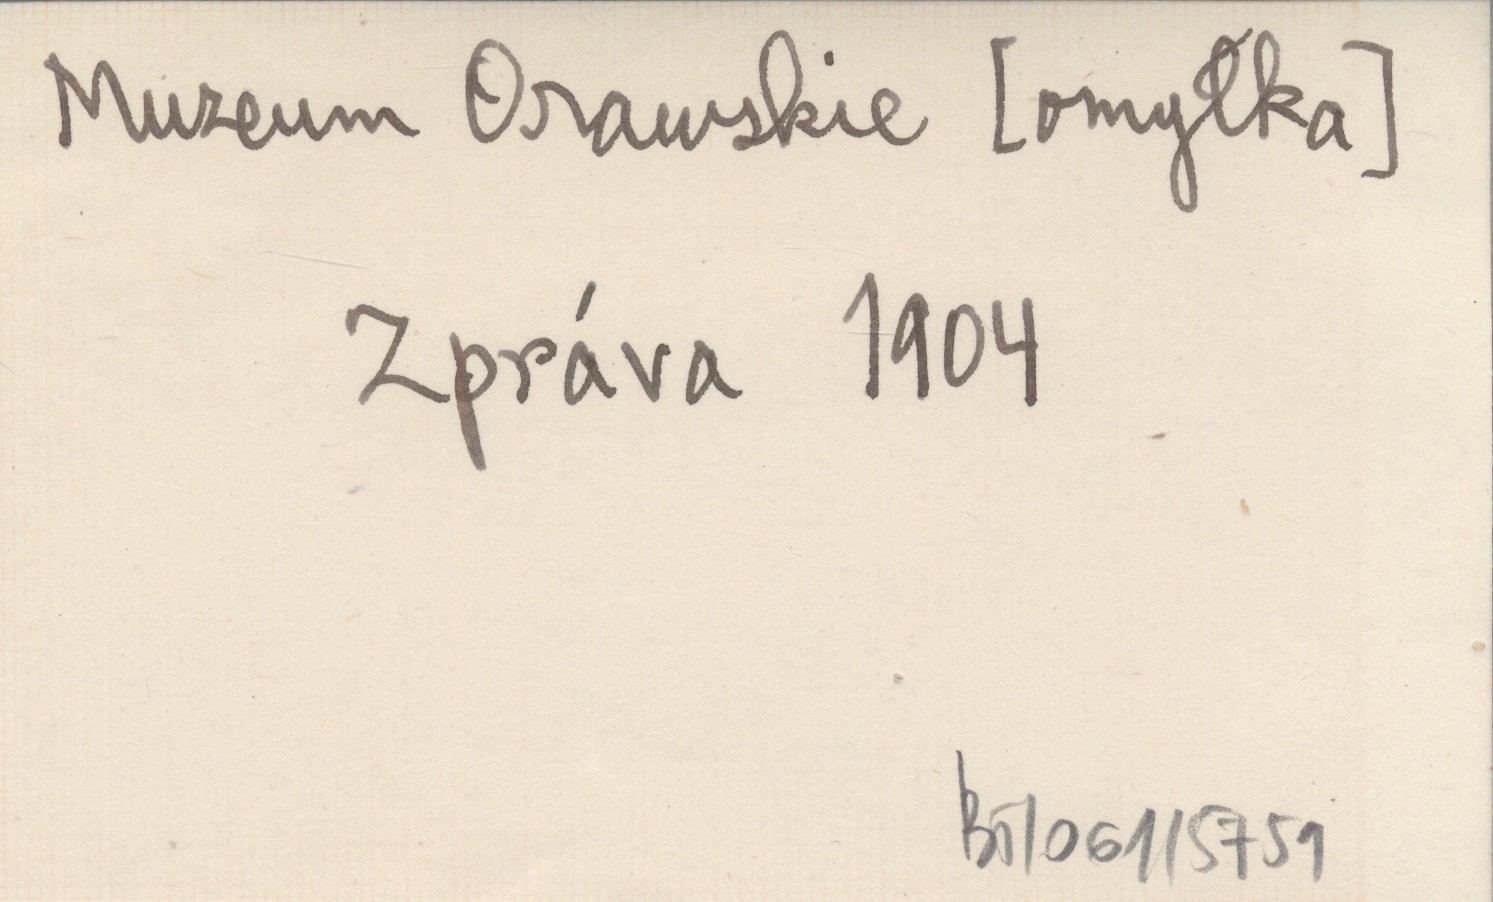 Muzeum Orawskie [omyłka]
Zpráva 1904